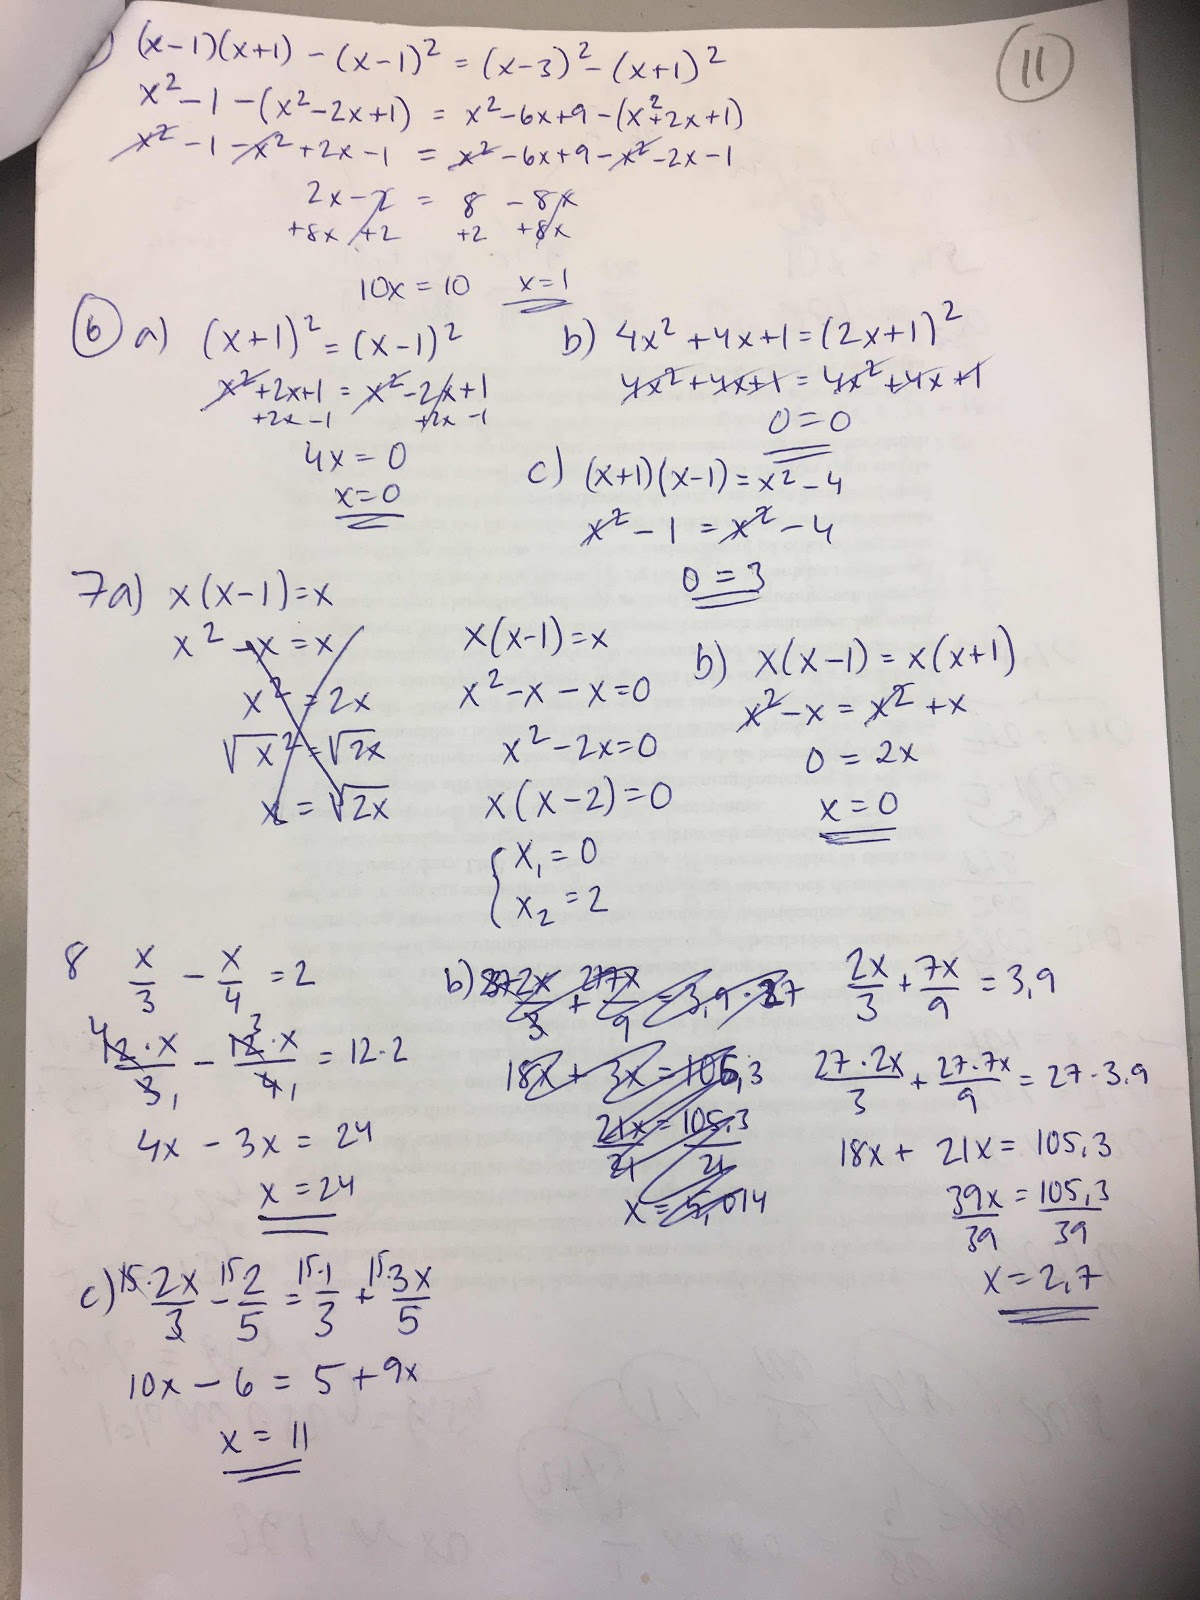 11
(x-1)(x+1) - (x-1)² = (x-3)² - (x+1)²
x² - 1 - (x² - 2x + 1) = x² - 6x + 9 - (x² + 2x + 1)
x² - 1 - x² + 2x - 1 = x² - 6x + 9 - x² - 2x - 1
2x - 2 = 8 - 8x
+8x +2 +2 +8x
10x = 10 x = 1
6 a) (x+1)² = (x-1)²
x² + 2x + 1 = x² - 2x + 1
+2x -1 +2x -1
4x = 0
x = 0
b) 4x² + 4x + 1 = (2x+1)²
4x² + 4x + 1 = 4x² + 4x + 1
0 = 0
c) (x+1)(x-1) = x² - 4
x² - 1 = x² - 4
0 = 3
7a) x(x-1) = x
x² - x = x
x² = 2x
√x² = √2x
x = √2x
x(x-1) = x
x² - x - x = 0
x² - 2x = 0
x(x-2) = 0
{ x₁ = 0
x₂ = 2
b) x(x-1) = x(x+1)
x² - x = x² + x
0 = 2x
x = 0
8 x/3 - x/4 = 2
4 12·x/3 1 - 3 12·x/4 1 = 12·2
4x - 3x = 24
x = 24
b)
18x + 3x = 105,3
21x/21 = 105,3/21
x = 5,014
2x/3 + 7x/9 = 3,9
27·2x/3 + 27·7x/9 = 27·3.9
18x + 21x = 105,3
39x/39 = 105,3/39
x = 2,7
c) 15·2x/3 - 15·2/5 = 15·1/3 + 15·3x/5
10x - 6 = 5 + 9x
x = 11